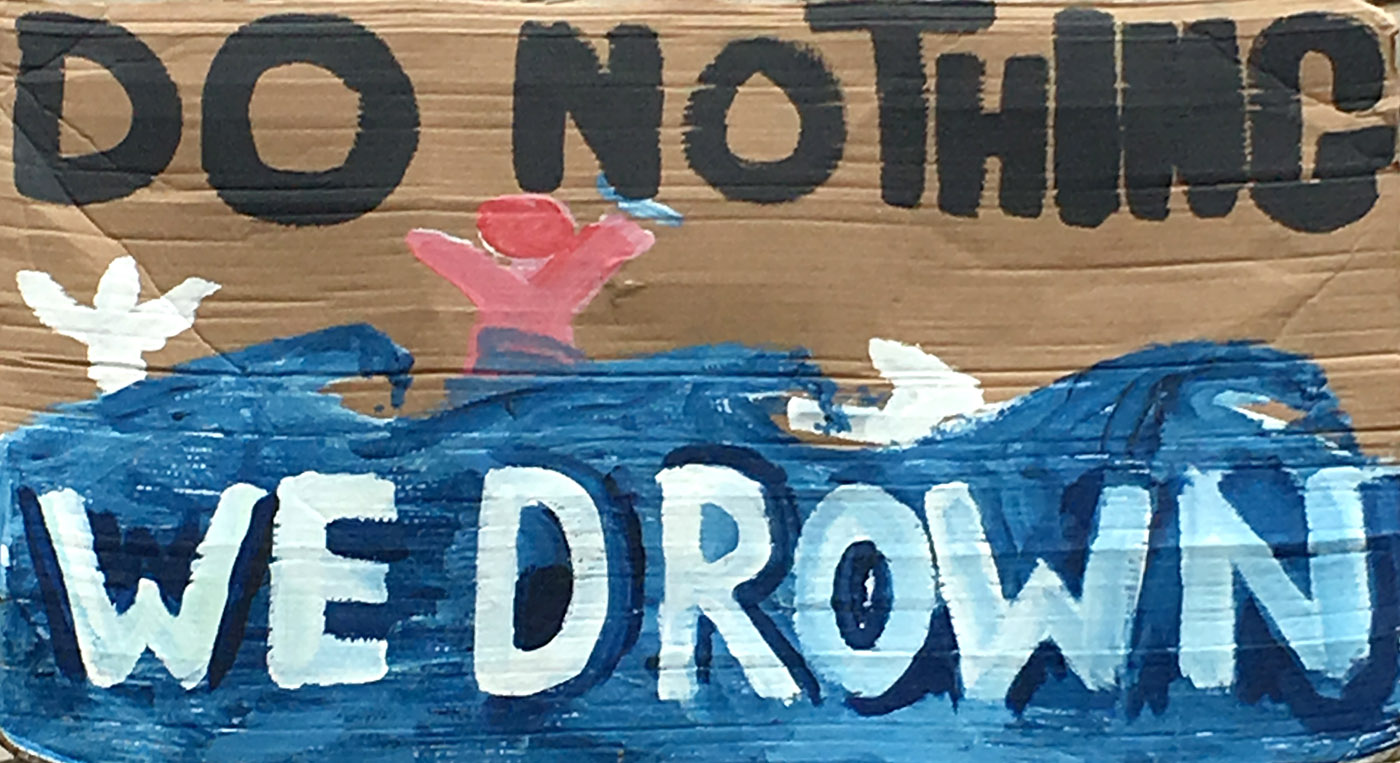 DO NOTHING
WE DROWN